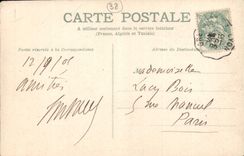 38
CARTE POSTALE
A utiliser seulement dans le service intérieur
(France, Algérie et Tunisie)
Partie réservée à la Correspondance
Adresse du Destinataire
12/9/05
amitiés
mademoiselle
Lucy Bois
5 rue
Paris